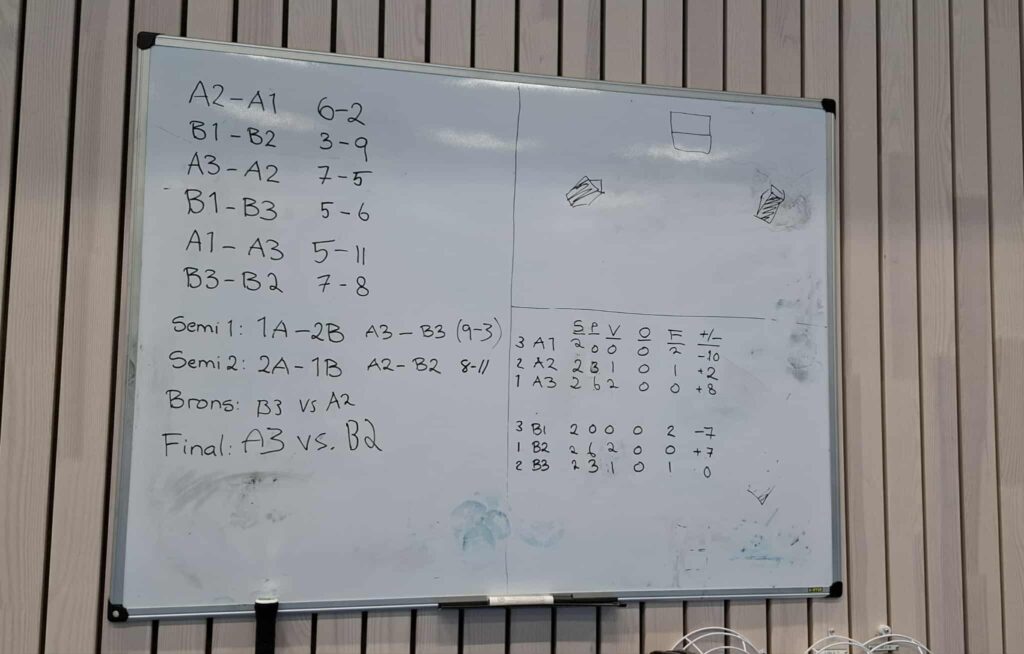 A2-A1 6-2
B1-B2 3-9
A3-A2 7-5
B1-B3 5-6
A1-A3 5-11
B3-B2 7-8
Semi 1: 1A-2B A3-B3 (9-3)
Semi 2: 2A-1B A2-B2 8-11
Brons: B3 vs A2
Final: A3 vs. B2
S P V O F +/-
3 A1 2 0 0 0 2 -10
2 A2 2 3 1 0 1 +2
1 A3 2 6 2 0 0 +8
3 B1 2 0 0 0 2 -7
1 B2 2 6 2 0 0 +7
2 B3 2 3 1 0 1 0